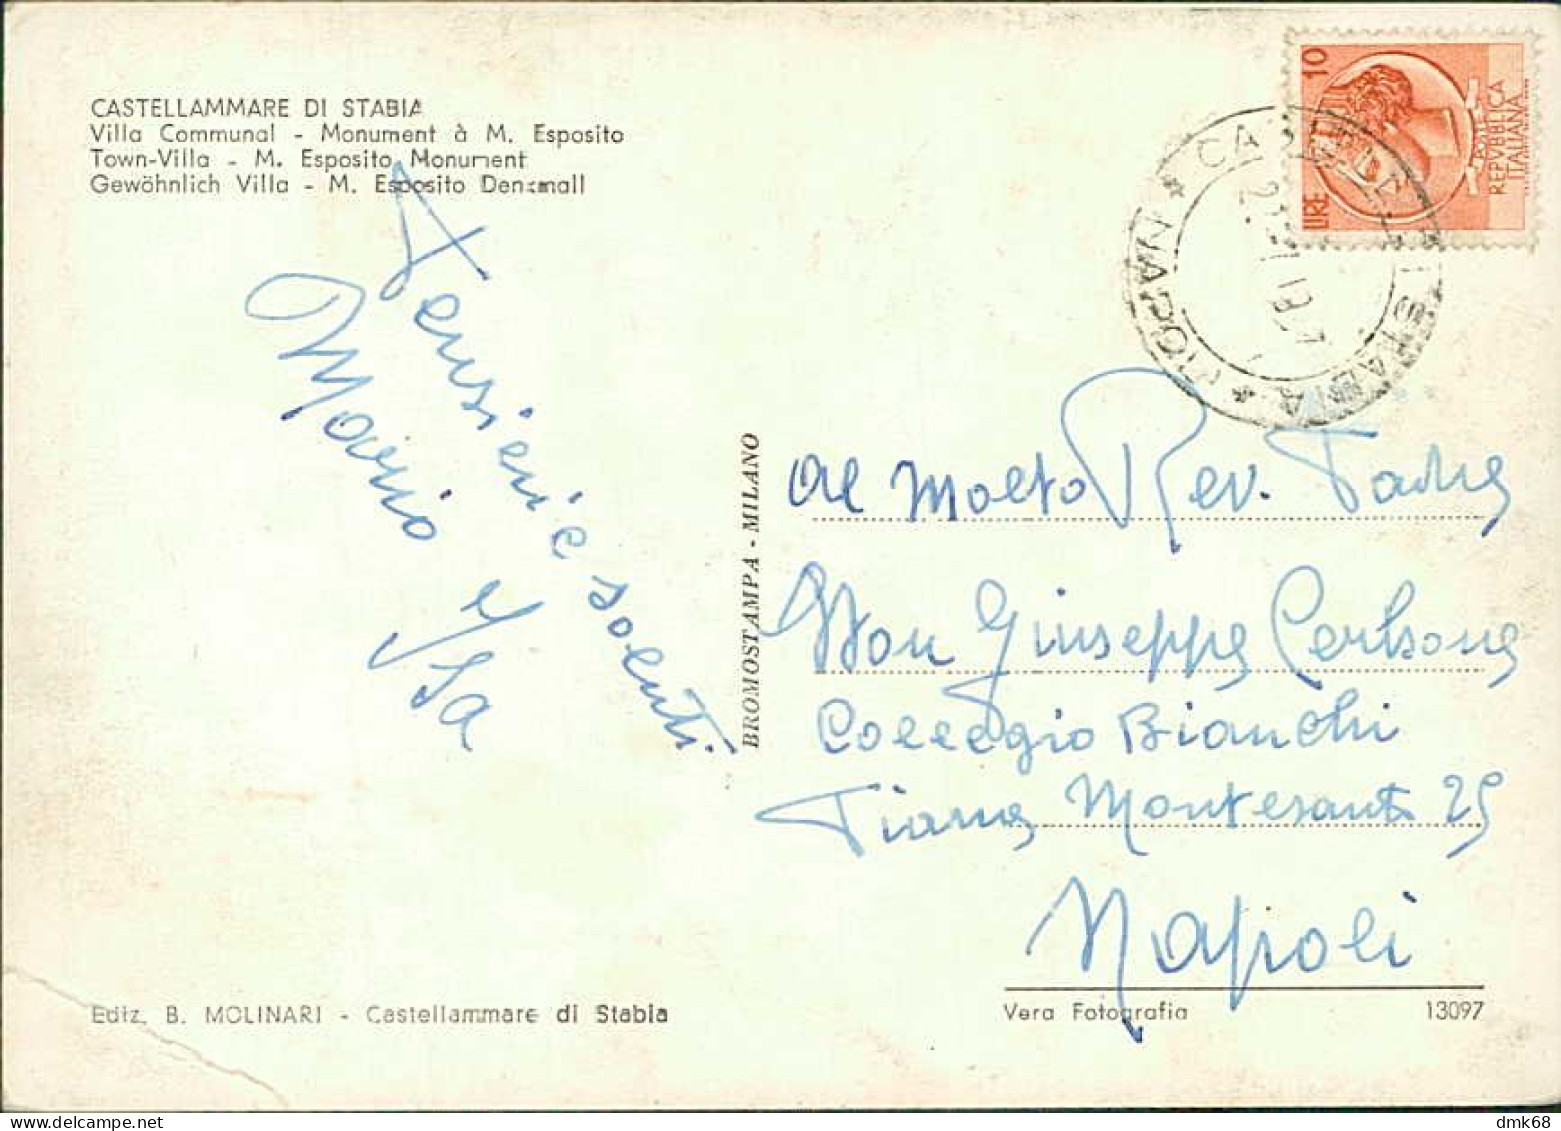 CASTELLAMMARE DI STABIA
Villa Communal - Monument à M. Esposito
Town-Villa - M. Esposito Monument
Gewöhnlich Villa - M. Esposito Denkmall
LIRE 10
POSTE
REPVBBLICA
ITALIANA
CASTELLAMMARE DI STABIA
* NAPOLI *
Pensieri e saluti
Mario e Isa
BROMOSTAMPA - MILANO
Al Molto Rev. Padre
Don Giuseppe
Collegio Bianchi
Piazza Montesanto 25
Napoli
Ediz. B. MOLINARI - Castellammare di Stabia
Vera Fotografia
13097
dmk68